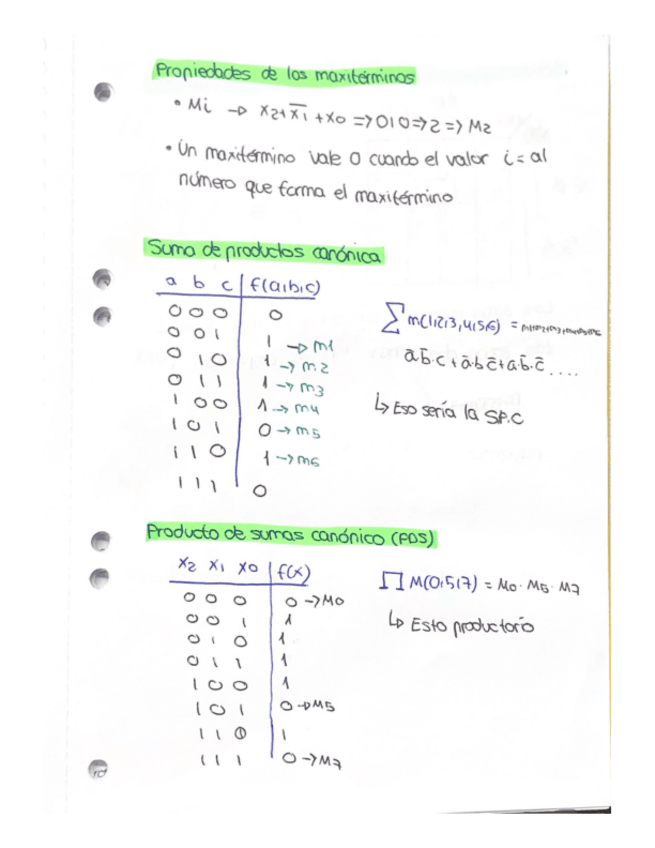 Propiedades de los maxitérminos
• Mi → x2+x̄1+x0 => 010 => 2 => M2
• Un maxitérmino vale 0 cuando el valor i = al
número que forma el maxitérmino
Suma de productos canónica
a b c f(a,b,c)
0 0 0 0
0 0 1 1 → m1
0 1 0 1 → m2
0 1 1 1 → m3
1 0 0 1 → m4
1 0 1 0 → m5
1 1 0 1 → m6
1 1 1 0
∑ m(1,2,3,4,5,6) = m1+m2+m3+m4+m5+m6
ā·b̄·c + ā·b·c̄ + a·b̄·c̄ ....
↳ Eso sería la SP.C
Producto de sumas canónico (PDS)
x2 x1 x0 f(x)
0 0 0 0 → M0
0 0 1 1
0 1 0 1
0 1 1 1
1 0 0 1
1 0 1 0 → M5
1 1 0 1
1 1 1 0 → M7
∏ M(0,5,7) = M0 · M5 · M7
↳ Esto productorio